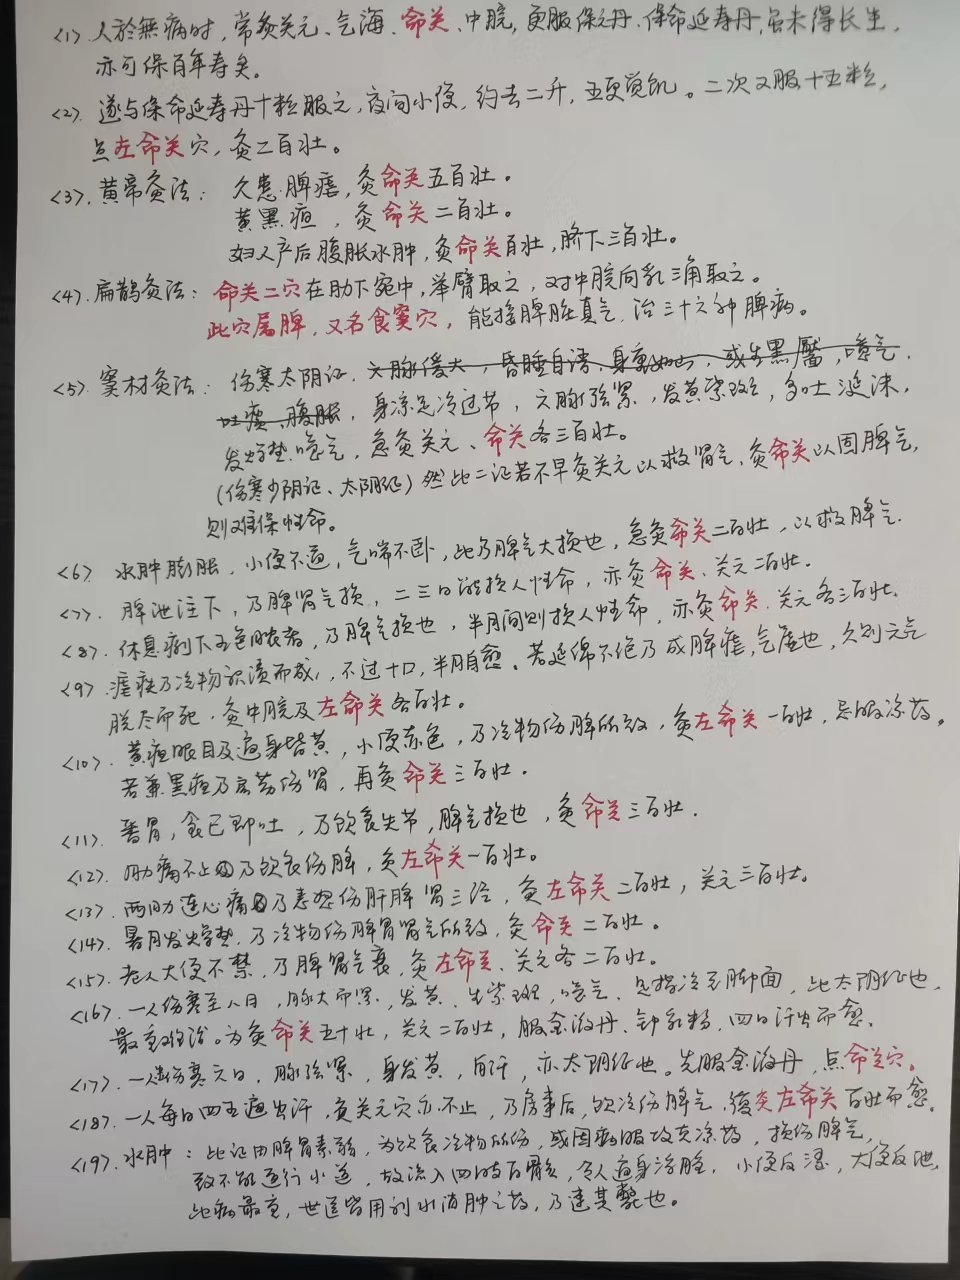 <1>. 人於無病时，常灸关元、气海、命关、中脘，更服保元丹、保命延寿丹，虽未得长生，
亦可保百年寿矣。
<2>. 遂与保命延寿丹十粒服之，夜间小便，约去二升，五更觉饥。二次又服十五粒，
点左命关穴，灸二百壮。
<3>. 黄帝灸法： 久患脾疟，灸命关五百壮。
黄黑疸，灸命关二百壮。
妇人产后腹胀水肿，灸命关百壮，脐下三百壮。
<4>. 扁鹊灸法： 命关二穴在肋下宛中，举臂取之，对中脘向乳三角取之。
此穴属脾，又名食窦穴，能接脾脏真气，治三十六种脾病。
<5>. 窦材灸法： 伤寒太阴证，六脉缓大，昏睡自语，身重如山，或生黑靥，噫气，
吐痰，腹胀，身凉足冷过节，六脉弦紧，发黄紫斑，多吐涎沫，
发燥热，噫气，急灸关元、命关各三百壮。
(伤寒少阴证、太阴证) 然此二证若不早灸关元以救肾气、灸命关以固脾气，
则难保性命。
<6> 水肿膨胀，小便不通，气喘不卧，此乃脾气大损也，急灸命关二百壮，以救脾气.
<7>. 脾泄注下，乃脾肾气损，二三日能损人性命，亦灸命关、关元二百壮.
<8>. 休息痢下五色脓者，乃脾气损也，半月间则损人性命，亦灸命关、关元各三百壮.
<9>. 疟疾乃冷物积滞而成，不过十日，半月自愈。若延绵不绝乃成脾疟，气虚也，久则元气
脱尽而死，灸中脘及左命关各百壮。
<10>. 黄疸眼目及遍身皆黄，小便赤色，乃冷物伤脾所致，灸左命关一百壮，忌服凉药。
若兼黑疸乃房劳伤肾，再灸命关三百壮.
<11>. 番胃，食已即吐，乃饮食失节，脾气损也，灸命关三百壮.
<12>. 胁痛不止乃饮食伤脾，灸左命关一百壮。
<13>. 两胁连心痛乃恚怒伤肝脾肾三经，灸左命关二百壮，关元三百壮。
<14>. 暑月发燥热，乃冷物伤脾胃肾气所致，灸命关二百壮.
<15>. 老人大便不禁，乃脾肾气衰，灸左命关、关元各二百壮。
<16>. 一人伤寒至八日，脉大而紧，发黄，生紫斑，噫气，足指冷至脚面，此太阴证也，
最重难治。为灸命关五十壮，关元二百壮，服金液丹、钟乳粉，四日汗出而愈.
<17>. 一人伤寒六日，脉弦紧，身发黄，自汗，亦太阴证也。先服金液丹，点命关穴。
<18>. 一人每日四五遍出汗，灸关元穴亦不止，乃房事后，饮冷伤脾气，复灸左命关百壮而愈.
<19>. 水肿： 此证由脾胃素弱，为饮食冷物所伤，或因病服攻克凉药，损伤脾气，
致不能通行水道，故流入四肢百骸，令人遍身浮肿，小便反涩，大便反泄，
此病最重，世医皆用利水消肿之药，乃速其毙也。